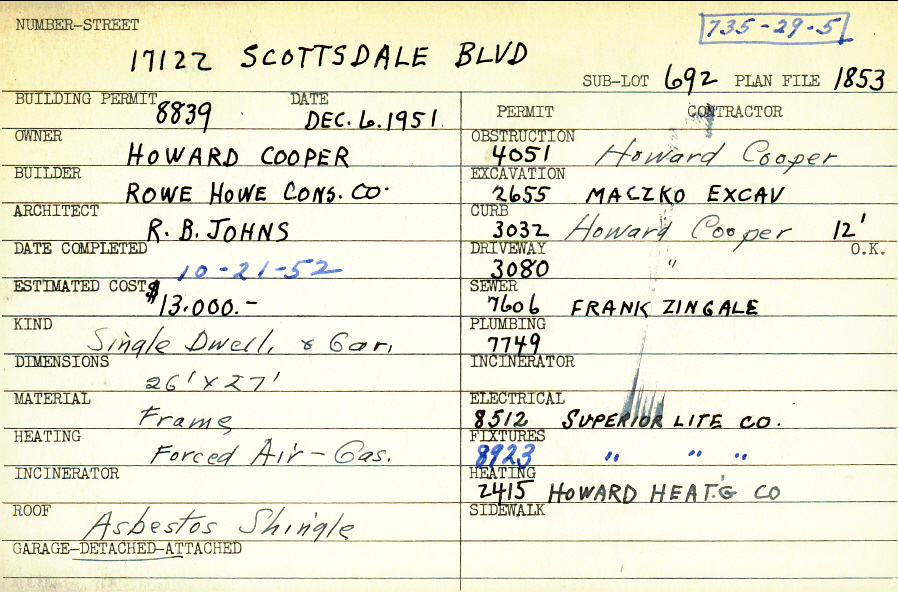 NUMBER-STREET
735-29-5
17122 SCOTTSDALE BLVD
SUB-LOT 692 PLAN FILE 1853
BUILDING PERMIT 8839 DATE DEC. 6. 1951
OWNER HOWARD COOPER
BUILDER ROWE HOWE CONS. CO.
ARCHITECT R. B. JOHNS
DATE COMPLETED 10-21-52
ESTIMATED COST $13.000.-
KIND Single Dwell. & Gar.
DIMENSIONS 26' X 27'
MATERIAL Frame
HEATING Forced Air - Gas.
INCINERATOR
ROOF Asbestos Shingle
GARAGE-DETACHED-ATTACHED
PERMIT CONTRACTOR
OBSTRUCTION 4051 Howard Cooper
EXCAVATION 2655 MACZKO EXCAV
CURB 3032 Howard Cooper 12'
DRIVEWAY 3080 " O.K.
SEWER 7606 FRANK ZINGALE
PLUMBING 7749
INCINERATOR
ELECTRICAL 8512 SUPERIOR LITE CO.
FIXTURES 8923 " " "
HEATING 2415 HOWARD HEAT'G CO
SIDEWALK